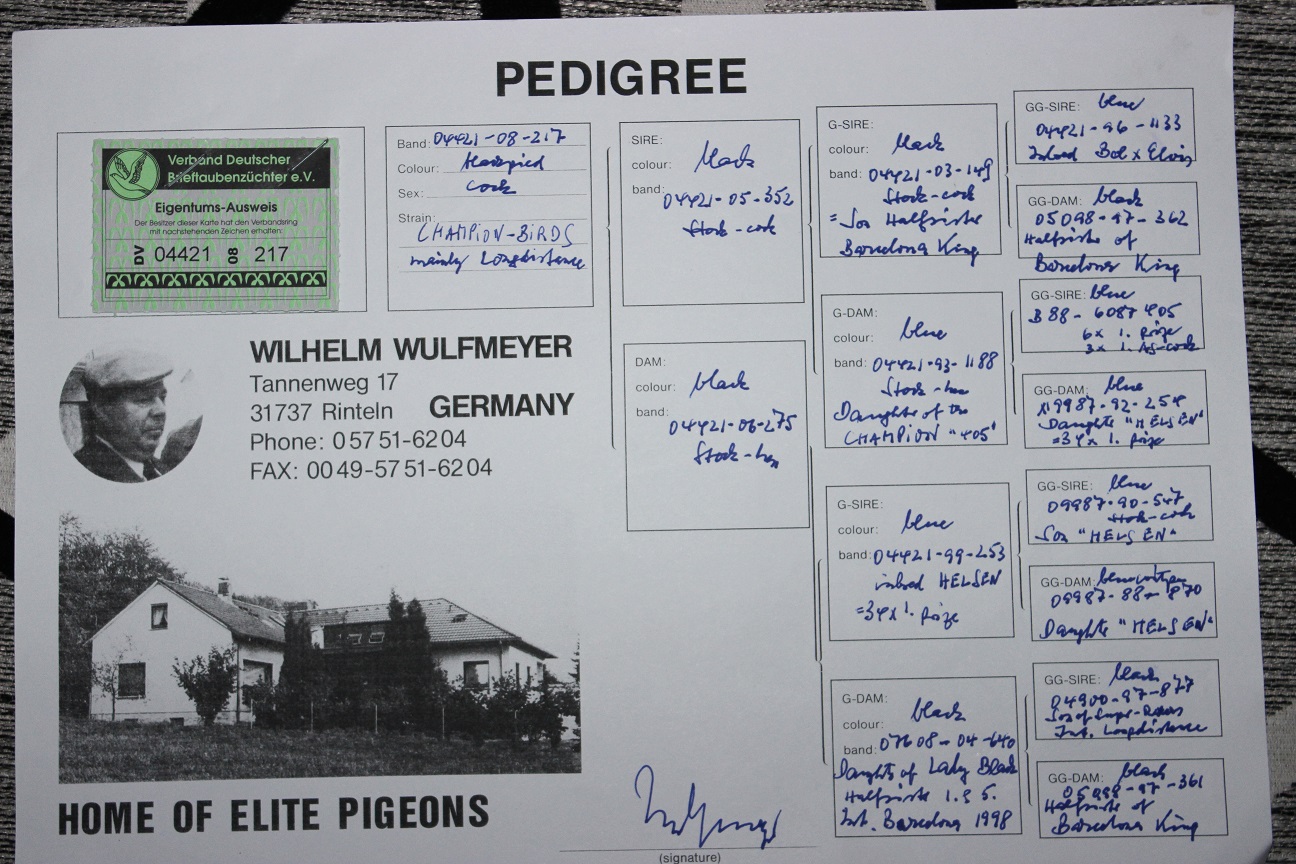 PEDIGREE
Verband Deutscher
Brieftaubenzüchter e.V.
Eigentums-Ausweis
Der Besitzer dieser Karte hat den Verbandsring
mit nachstehenden Zeichen erhalten:
DV 04421 08 217
Band: 04421-08-217
Colour:
Sex: cock
Strain:
CHAMPION-BIRDS
mainly Longdistance
WILHELM WULFMEYER
Tannenweg 17
31737 Rinteln GERMANY
Phone: 05751-6204
FAX: 0049-5751-6204
HOME OF ELITE PIGEONS
SIRE:
colour: black
band: 04421-05-352
Stock-cock
DAM:
colour: black
band: 04421-06-275
Stock-hen
G-SIRE:
colour: black
band: 04421-03-149
Stock-cock
= Son
Barcelona King
G-DAM:
colour: blue
band: 04421-93-1188
Stock-hen
Daughter of the
CHAMPION "405"
G-SIRE:
colour: blue
band: 04421-99-253
inbred HELSEN
=34x1.
G-DAM:
colour: black
band: 07608-04-640
Daughter of Lady Black
1. & 5.
Int. Barcelona 1998
GG-SIRE: blue
04421-96-1133
Inbred
GG-DAM: black
05098-97-362
of
Barcelona King
GG-SIRE: blue
B 88-6087405
6x 1.
3x 1. As-cock
GG-DAM: blue
09987-92-254
Daughter "HELSEN"
=34x 1.
GG-SIRE: blue
09987-90-547
Stock-cock
Son "HELSEN"
GG-DAM:
09987-88-870
Daughter "HELSEN"
GG-SIRE: black
04900-97-877
Son of
Int. Longdistance
GG-DAM: black
05098-97-361
of
Barcelona King
(signature)